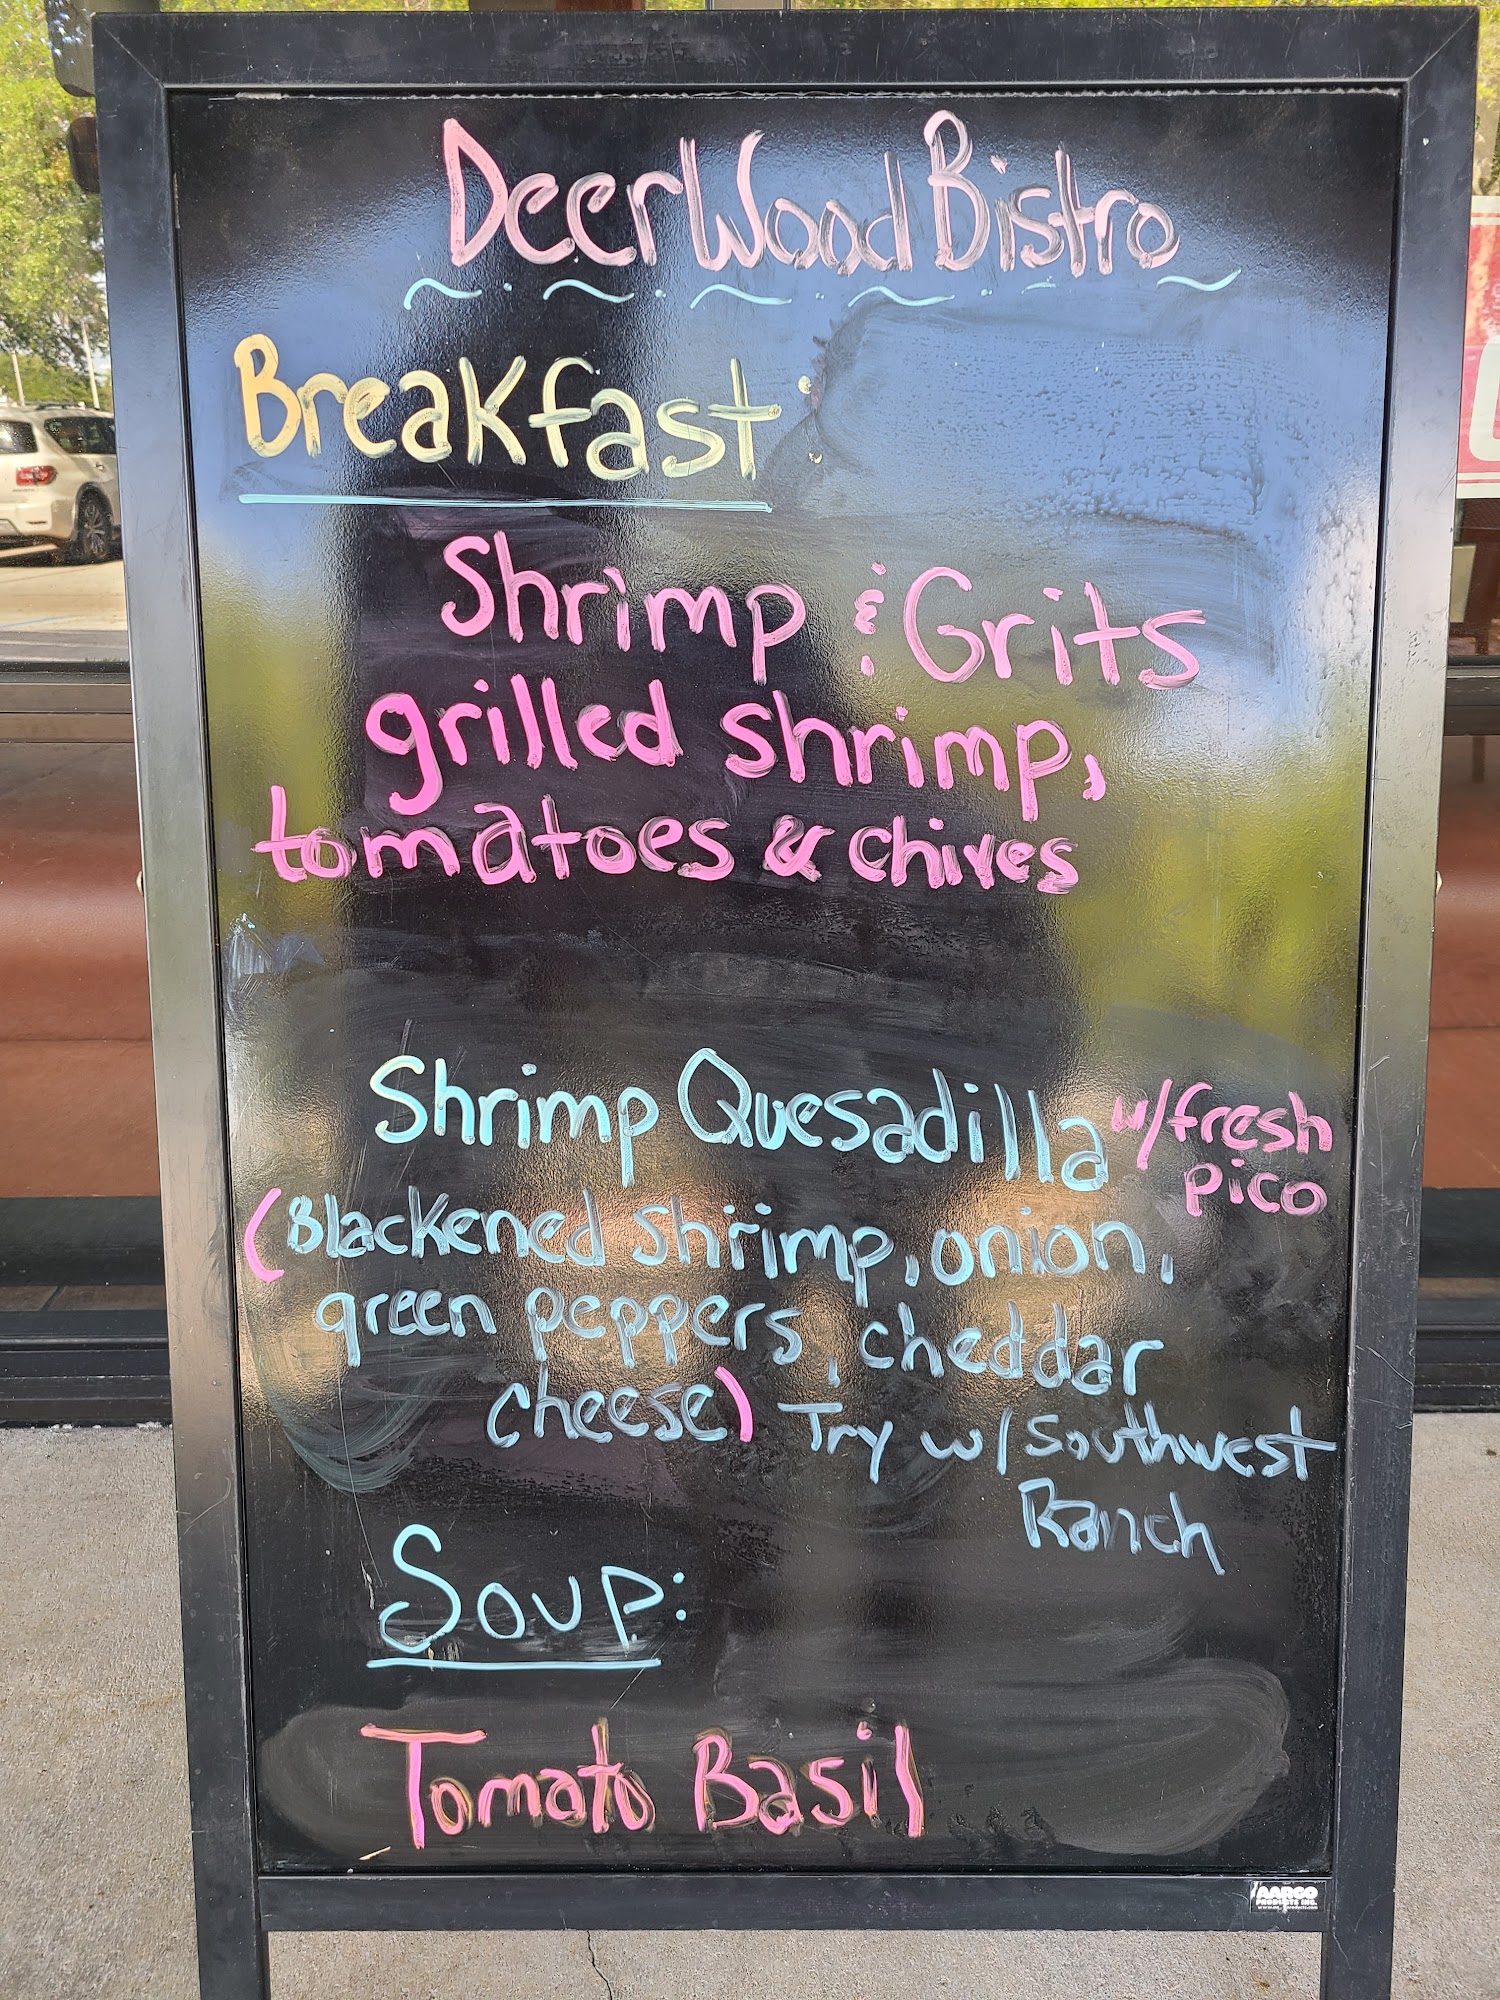 DeerWood Bistro
Breakfast:
Shrimp & Grits
grilled shrimp,
tomatoes & chives
Shrimp Quesadilla w/fresh
pico
(Blackened shrimp, onion,
green peppers, cheddar
cheese) Try w/ Southwest
Ranch
Soup:
Tomato Basil
AARCO
PRODUCTS INC.